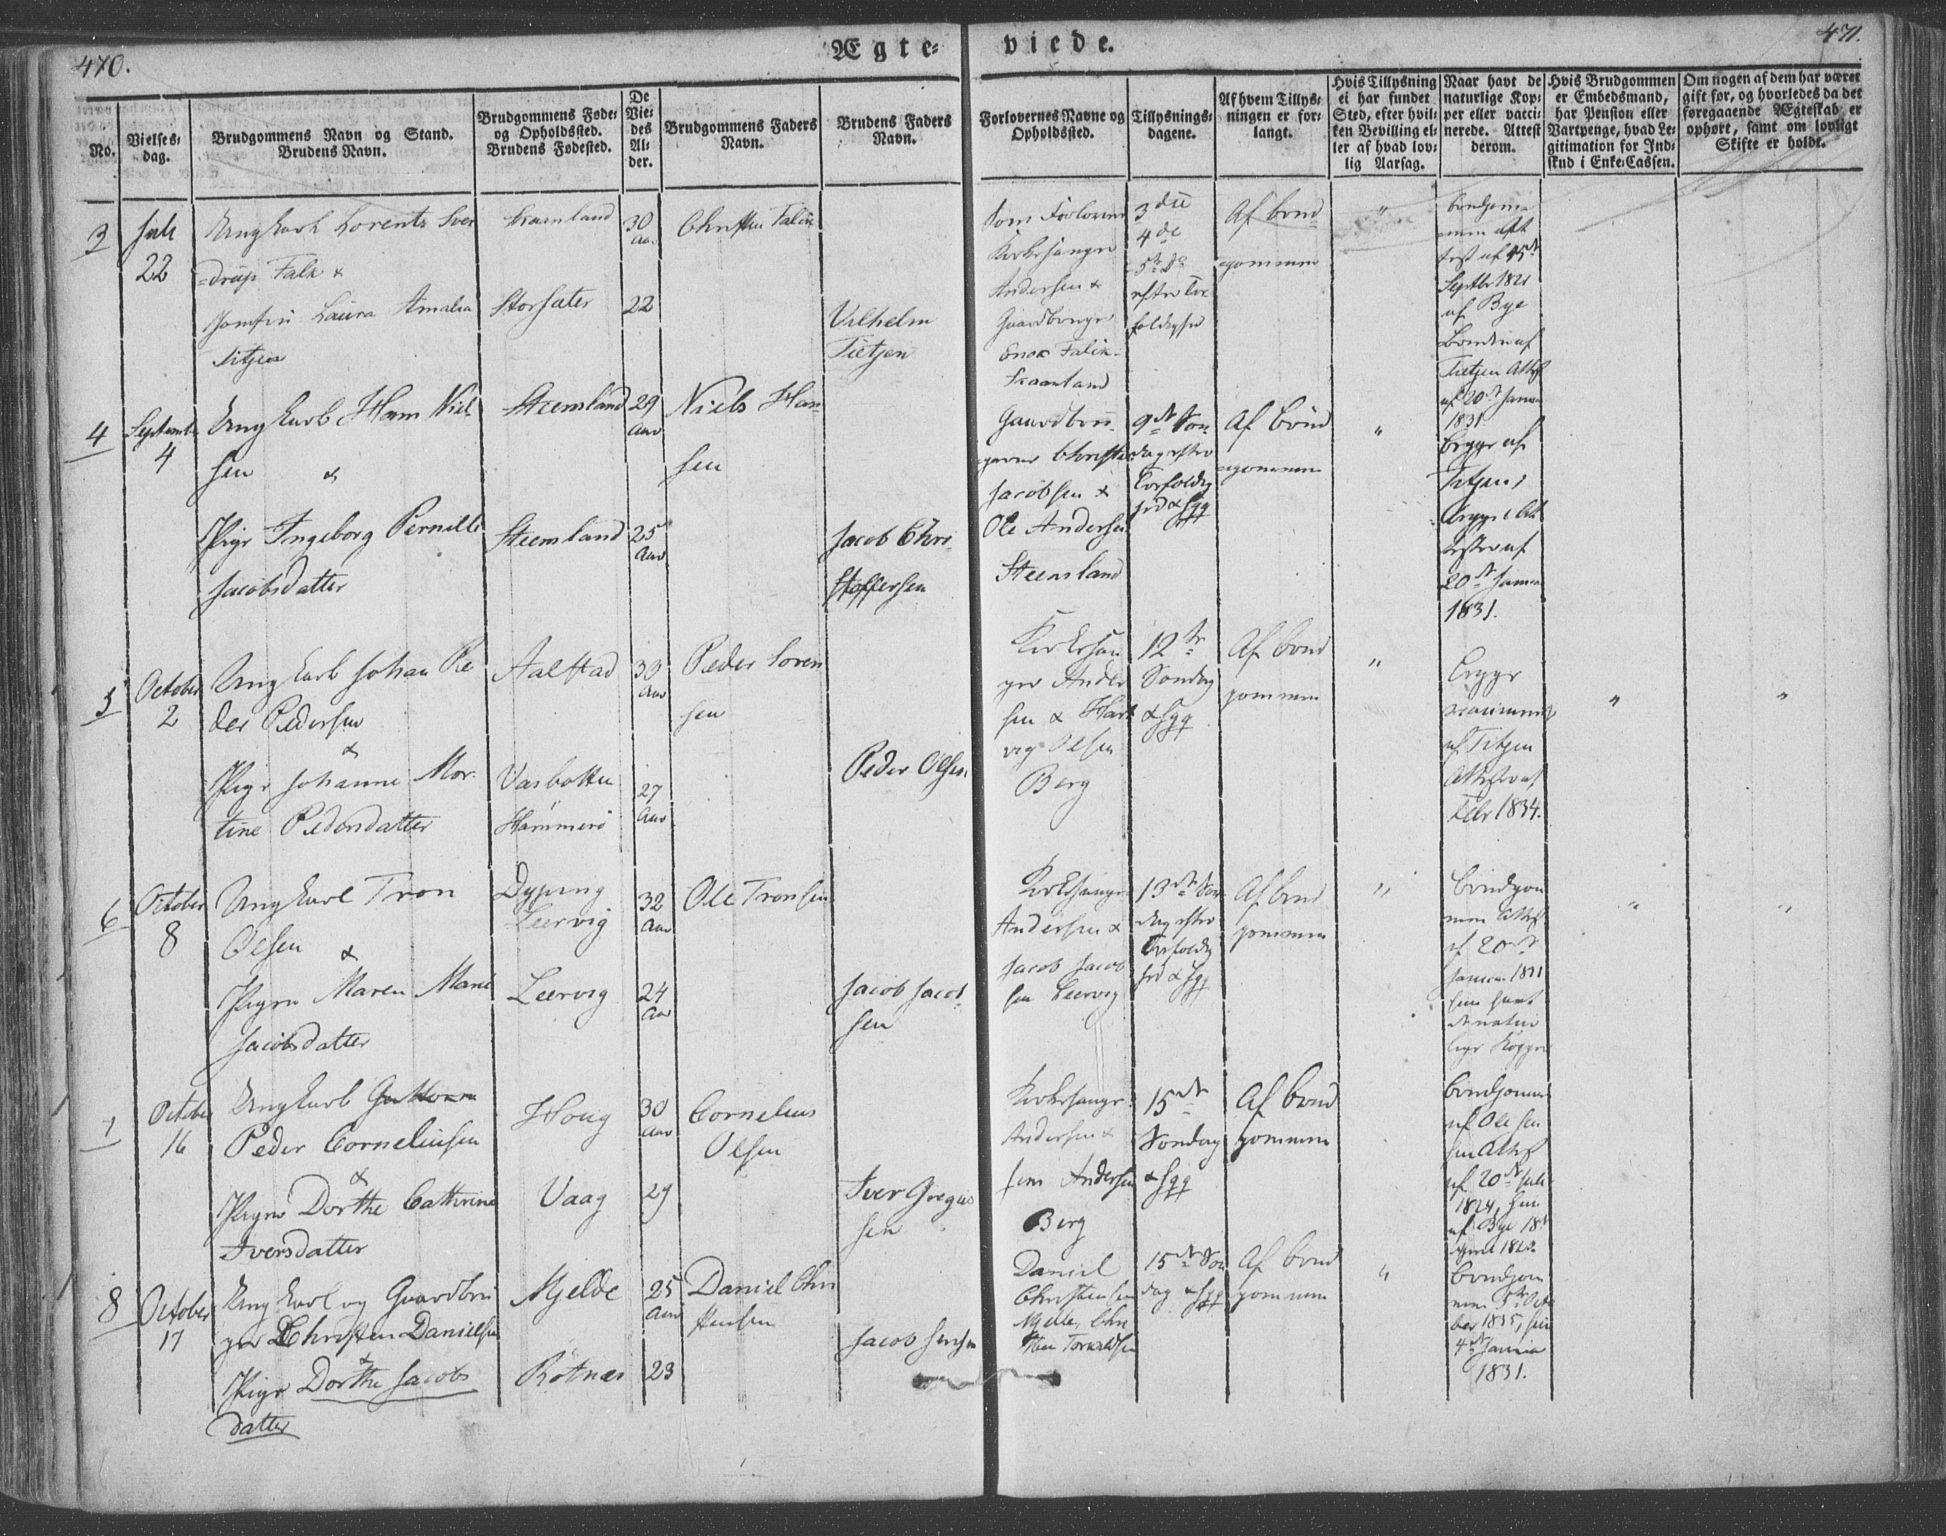 470.
Ægte-
viede.
471.
No.
Vielses-
dag.
Brudgommens Navn og Stand.
Brudens Navn.
Brudgommens Føde-
og Opholdssted.
Brudens Fødested.
De
Vie-
des
Al-
der.
Brudgommens Faders
Navn.
Brudens Faders
Navn.
Forlovernes Navne og
Opholdssted.
Tillysnings-
dagene.
Af hvem Tillys-
ningen er for-
langt.
Hvis Tillysning
ei har fundet
Sted, efter hvil-
ken Bevilling el-
ler af hvad lov-
lig Aarsag.
Naar havt de
naturlige Kop-
per eller vacci-
nerede. Attest
derom.
Hvis Brudgommen
er Embedsmand,
har Pension eller
Vartpenge, hvad Le-
gitimation for Ind-
skud i Enke-Cassen.
Om nogen af dem har været
gift før, og hvorledes da det
foregaaende Ægteskab er
ophørt, samt om lovligt
Skifte er holdt.
3
Juli
22
Ungkarl Lorents
Falk &
Jomfru Laura Amalia
Titjen
30
Aar
22
Vilhelm
Tietjen
Kirkesanger
Andersen &
3die
4de
Af brud
gommen
"
Septbr 1821
af Bye
Tietjen Attest
af 20de Januar
1831
4
September
4
Ungkarl Hans Niel
sen &
Pige Ingeborg Pernille
Jacobsdatter
Steensland
29
Aar
Steensland
25
Aar
Niels Han
sen
Jacob Chri
stoffersen
Gaardbru
gerne Christen
Jacobsen &
Ole Andersen
Steensland
9de Søn
dag efter
Trefoldig
hed & flgg
Af brud
gommen
"
Begge af
Titjen,
20de Januar
1831.
5
October
2
Ungkarl Johan Pe
der Pedersen
&
Pige Johanne Mor
tine Pedersdatter
Aalstad
33
Aar
Hammerø
27
Aar
Peder Søren
sen
Peder Olsen
Kirkesan
ger Ander
sen & Hart
vig Olsen
Berg
12te
Søndag
& flgg
Af brud
gommen
"
Begge
vaccinerede
af Titjen
Febr 1834.
"
"
6
October
8
Ungkarl Tron
Olsen &
Pigen Maren Marie
Jacobsdatter
Dyping
Leervig
32
Aar
Leervig
24
Aar
Ole Tronsen
Jacob Jacob
sen
Kirkesanger
Andersen &
Jacob Jacob
sen Leervig
13de Søn
dag efter
Trefoldig
hed & flgg
Af brud
gommen
"
Brudgom
men Attest
af 20de
Januar 1831
hun havt
de natur
lige Kopper
"
"
7
October
16
Ungkarl
Peder Corneliussen
&
Pigen Dorthe Cathrine
Iversdatter
Houg
30
Aar
Vaag
29
Cornelius
Olsen
Iver Gregus
sen
Kirkesanger
Andersen &
Jens Andersen
Berg
15de
Søndag
& flgg
Af brud
gommen
Brudgommen
af Ole Jen
sen Attest
af 20de Juli
1824, hun
af Bye 18de
8
October
17
Ungkarl og Gaardbru
ger Christen Danielsen
&
Pige Dorthe Jacobs
datter
Mjelde
25
Aar
Røtnæs
23
Daniel Chri
stensen
Jacob Jensen
Daniel
Christensen
Mjelle, Chri
sten Torvaldsen
15de Søn
dag & flgg
Af brud
gommen
"
Brudgom
men 5te Octo
ber 1815, hun
4de Januar
1831.